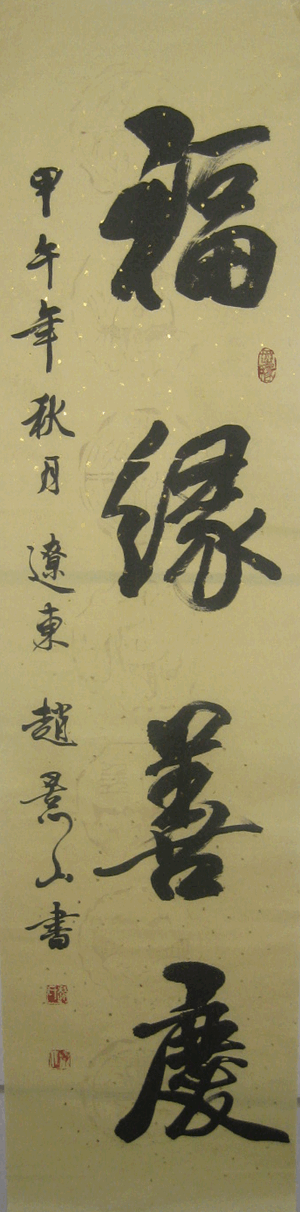 福緣善慶
甲午年秋月遼東趙景山書